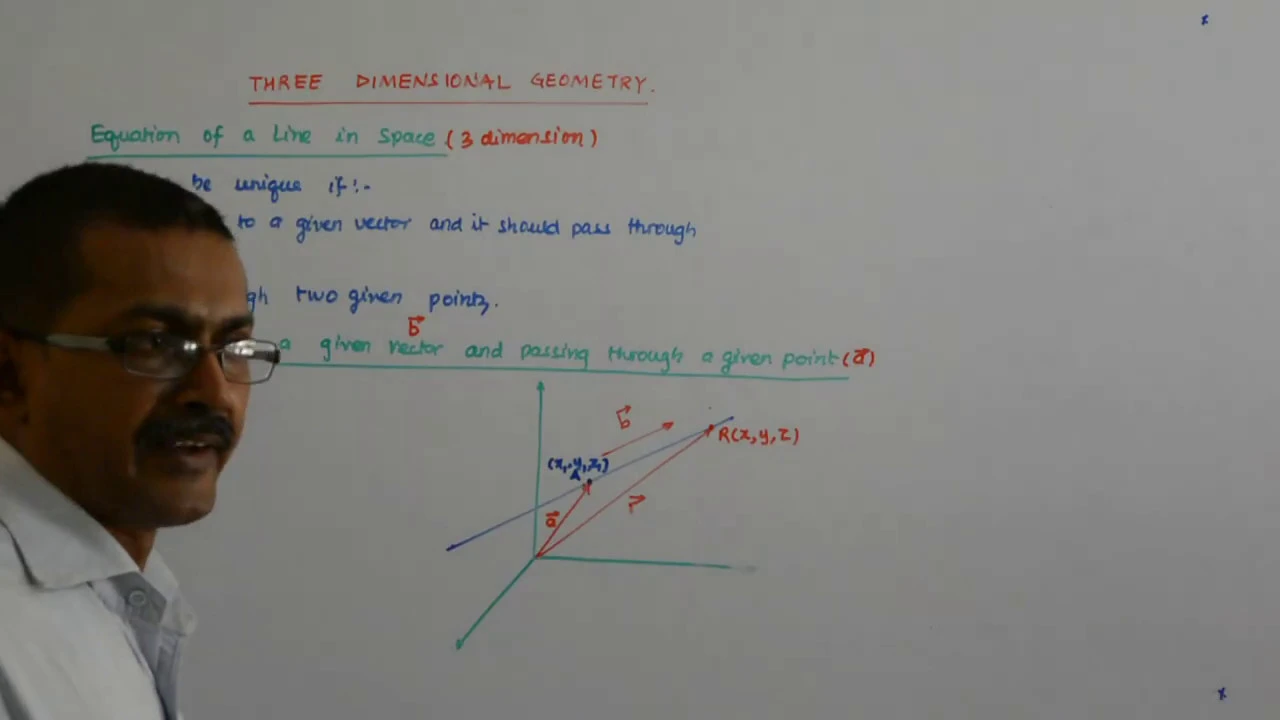 THREE DIMENSIONAL GEOMETRY.
Equation of a Line in Space (3 dimension)
be unique if:-
to a given vector and it should pass through
gh two given points.
b⃗
a given vector and passing through a given point (a⃗)
b⃗
R(x, y, z)
(x₁, y₁, z₁)
A
r⃗
a⃗